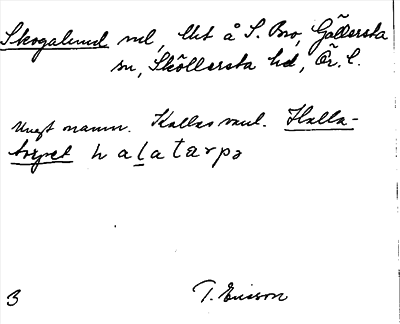 Skogalund nd, lht å S. Bro, Gällersta
sn, Sköllersta hd, Ör. l.
Ungt namn. Kallas vanl. Halla-
torpet halatarpə
3 T. Ericson